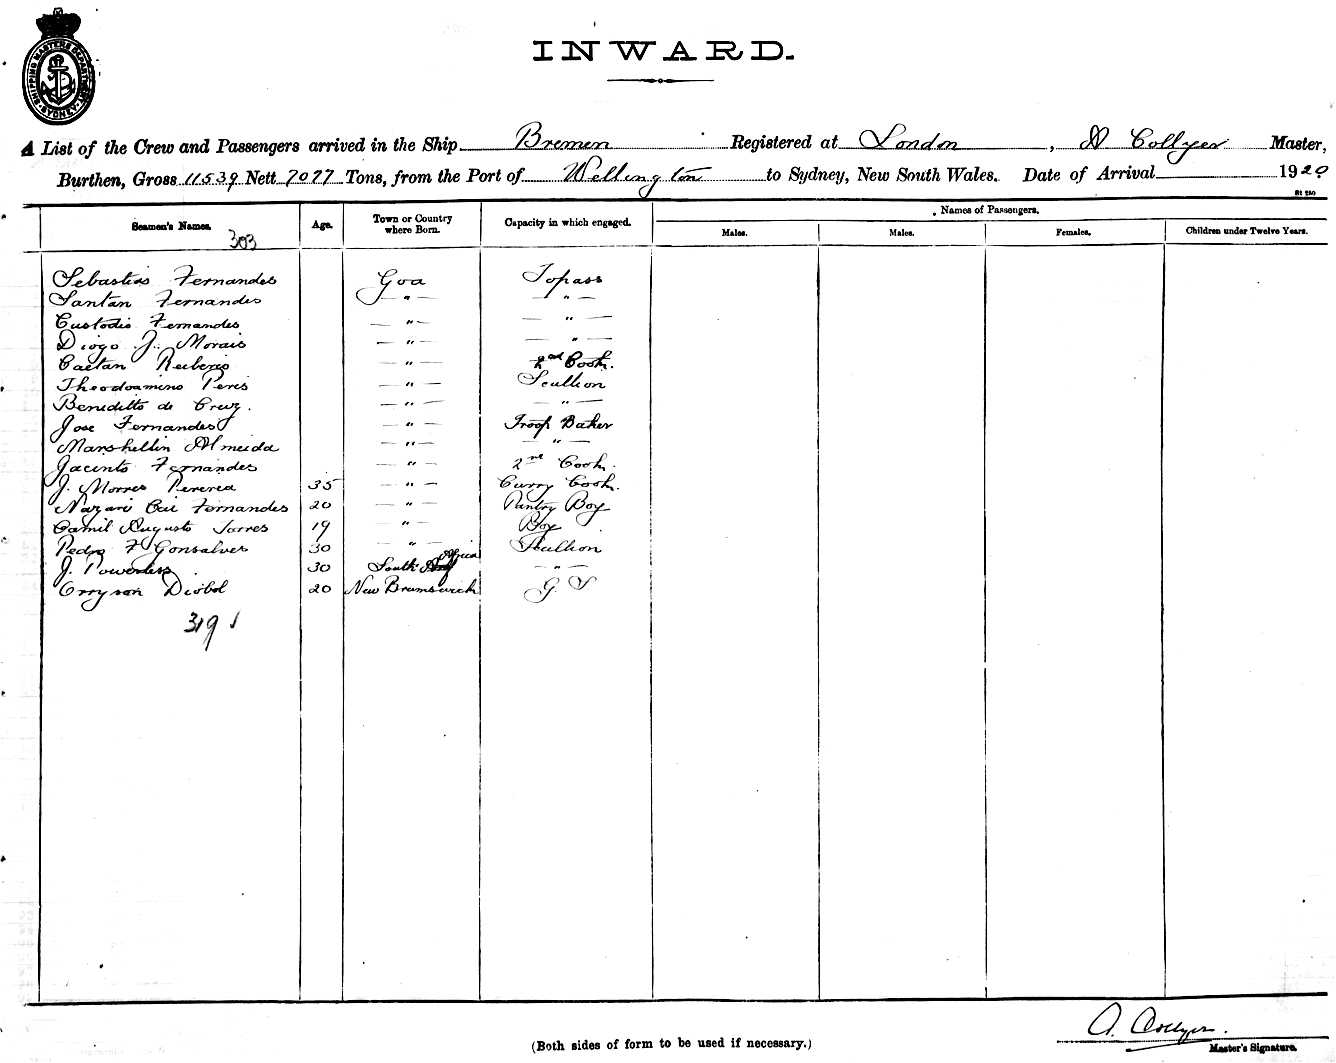 SHIPPING MASTERS DEPARTMENT SYDNEY
INWARD.
A List of the Crew and Passengers arrived in the Ship Bremen Registered at London, A Collyer Master,
Burthen, Gross 11539 Nett 7077 Tons, from the Port of Wellington to Sydney, New South Wales. Date of Arrival 1920
St 240
Seamen's Names. 303 Age. Town or Country where Born. Capacity in which engaged. Names of Passengers.
Males. Males. Females. Children under Twelve Years.
Sebastião Fernandes Goa Topass
Santan Fernandes — " — — " —
Custodio Fernandes — " — — " —
Diogo J. Morais — " — — " —
Caetan Reiberio — " — 2nd Cook.
Peris — " — Scullion
Beneditto de Cruz. — " — — " —
Jose Fernandes — " — Troop Baker
Marshellin Almeida — " — — " —
Jacinto Fernandes — " — 2nd Cook.
J. Morres Pererea 35 — " — Curry Cook.
Fernandes 20 — " — Pantry Boy
Camil Augusto Torres 19 — " — Boy
Pedro F Gonsalves 30 — " — Scullion
J. 30 South Africa — " —
20 New Brunswick G. S
319
A. Collyer.
(Both sides of form to be used if necessary.)
Master's Signature.